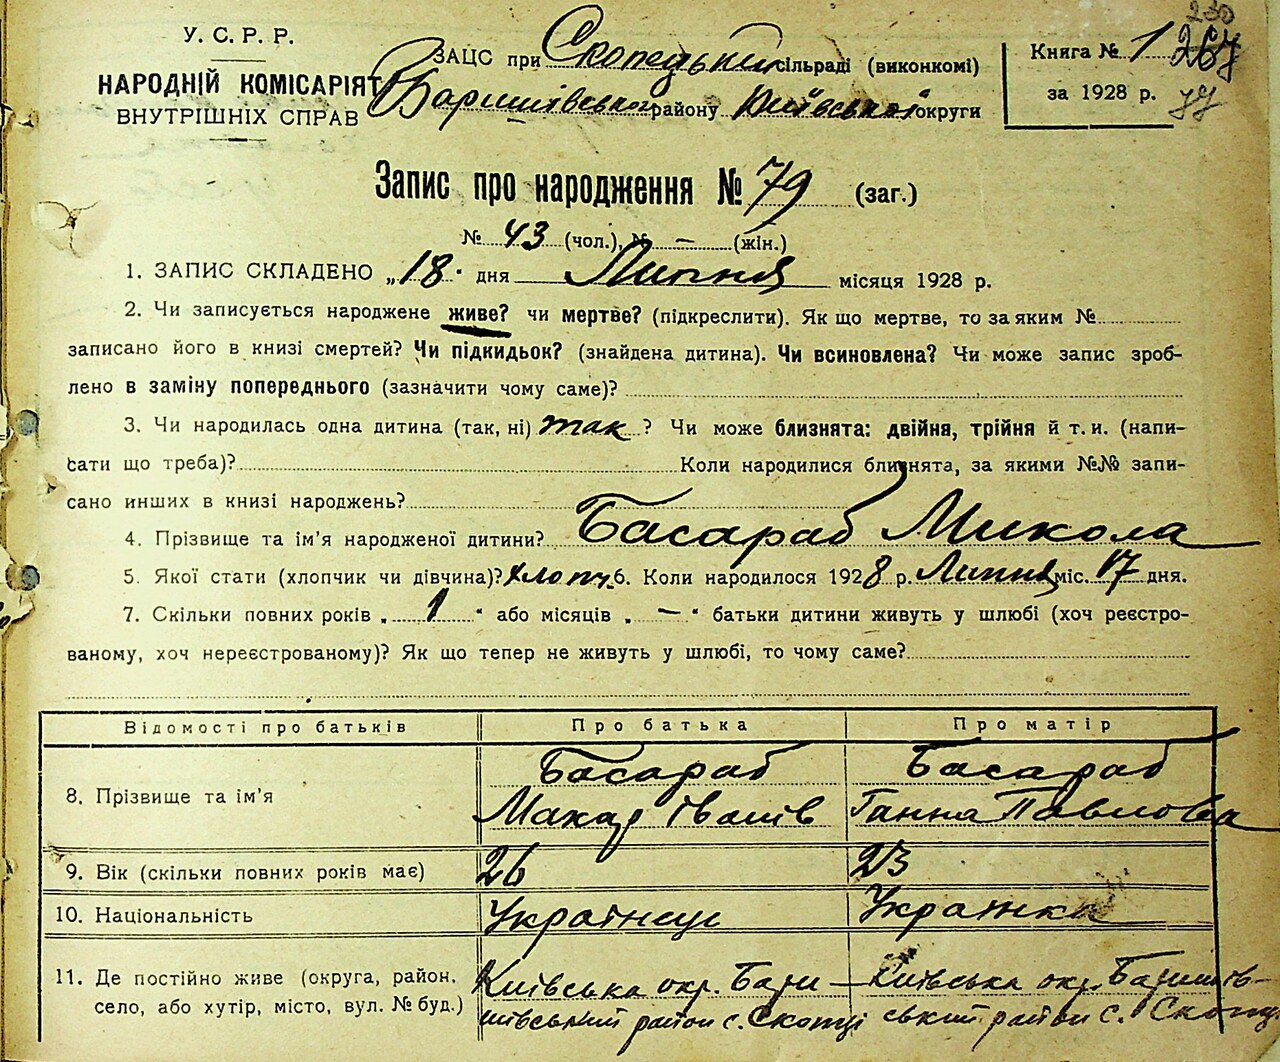 230
У. С. Р. Р.
ЗАЦС при Скопецький сільраді (виконкомі)
Книга № 1
НАРОДНІЙ КОМІСАРІЯТ
ВНУТРІШНІХ СПРАВ
Баришівського району Київської округи
за 1928 р.
79
Запис про народження № 79 (заг.)
№ 43 (чол.), № — (жін.)
1. ЗАПИС СКЛАДЕНО „18" дня Липня місяця 1928 р.
2. Чи записується народжене живе? чи мертве? (підкреслити). Як що мертве, то за яким №
записано його в книзі смертей? Чи підкидьок? (знайдена дитина). Чи всиновлена? Чи може запис зроб-
лено в заміну попереднього (зазначити чому саме)?
3. Чи народилась одна дитина (так, ні) так ? Чи може близнята: двійня, трійня й т. и. (напи-
сати що треба)? Коли народилися близнята, за якими №№ запи-
сано инших в книзі народжень?
4. Прізвище та ім'я народженої дитини? Басараб Микола
5. Якої стати (хлопчик чи дівчина)? хлопч. 6. Коли народилося 1928 р. Липня міс. 17 дня.
7. Скільки повних років „ 1 " або місяців „ — " батьки дитини живуть у шлюбі (хоч реєстро-
ваному, хоч нереєстрованому)? Як що тепер не живуть у шлюбі, то чому саме?
Відомості про батьків Про батька Про матір
8. Прізвище та ім'я Басараб Басараб
Макар Іванів Ганна Павлова
9. Вік (скільки повних років має) 26 23
10. Національність Українець Українка
11. Де постійно живе (округа, район, Київська окр. Бари— Київська окр. Баришів-
село, або хутір, місто, вул. № буд.) шівський район с. Скопці ський район с. Скопці